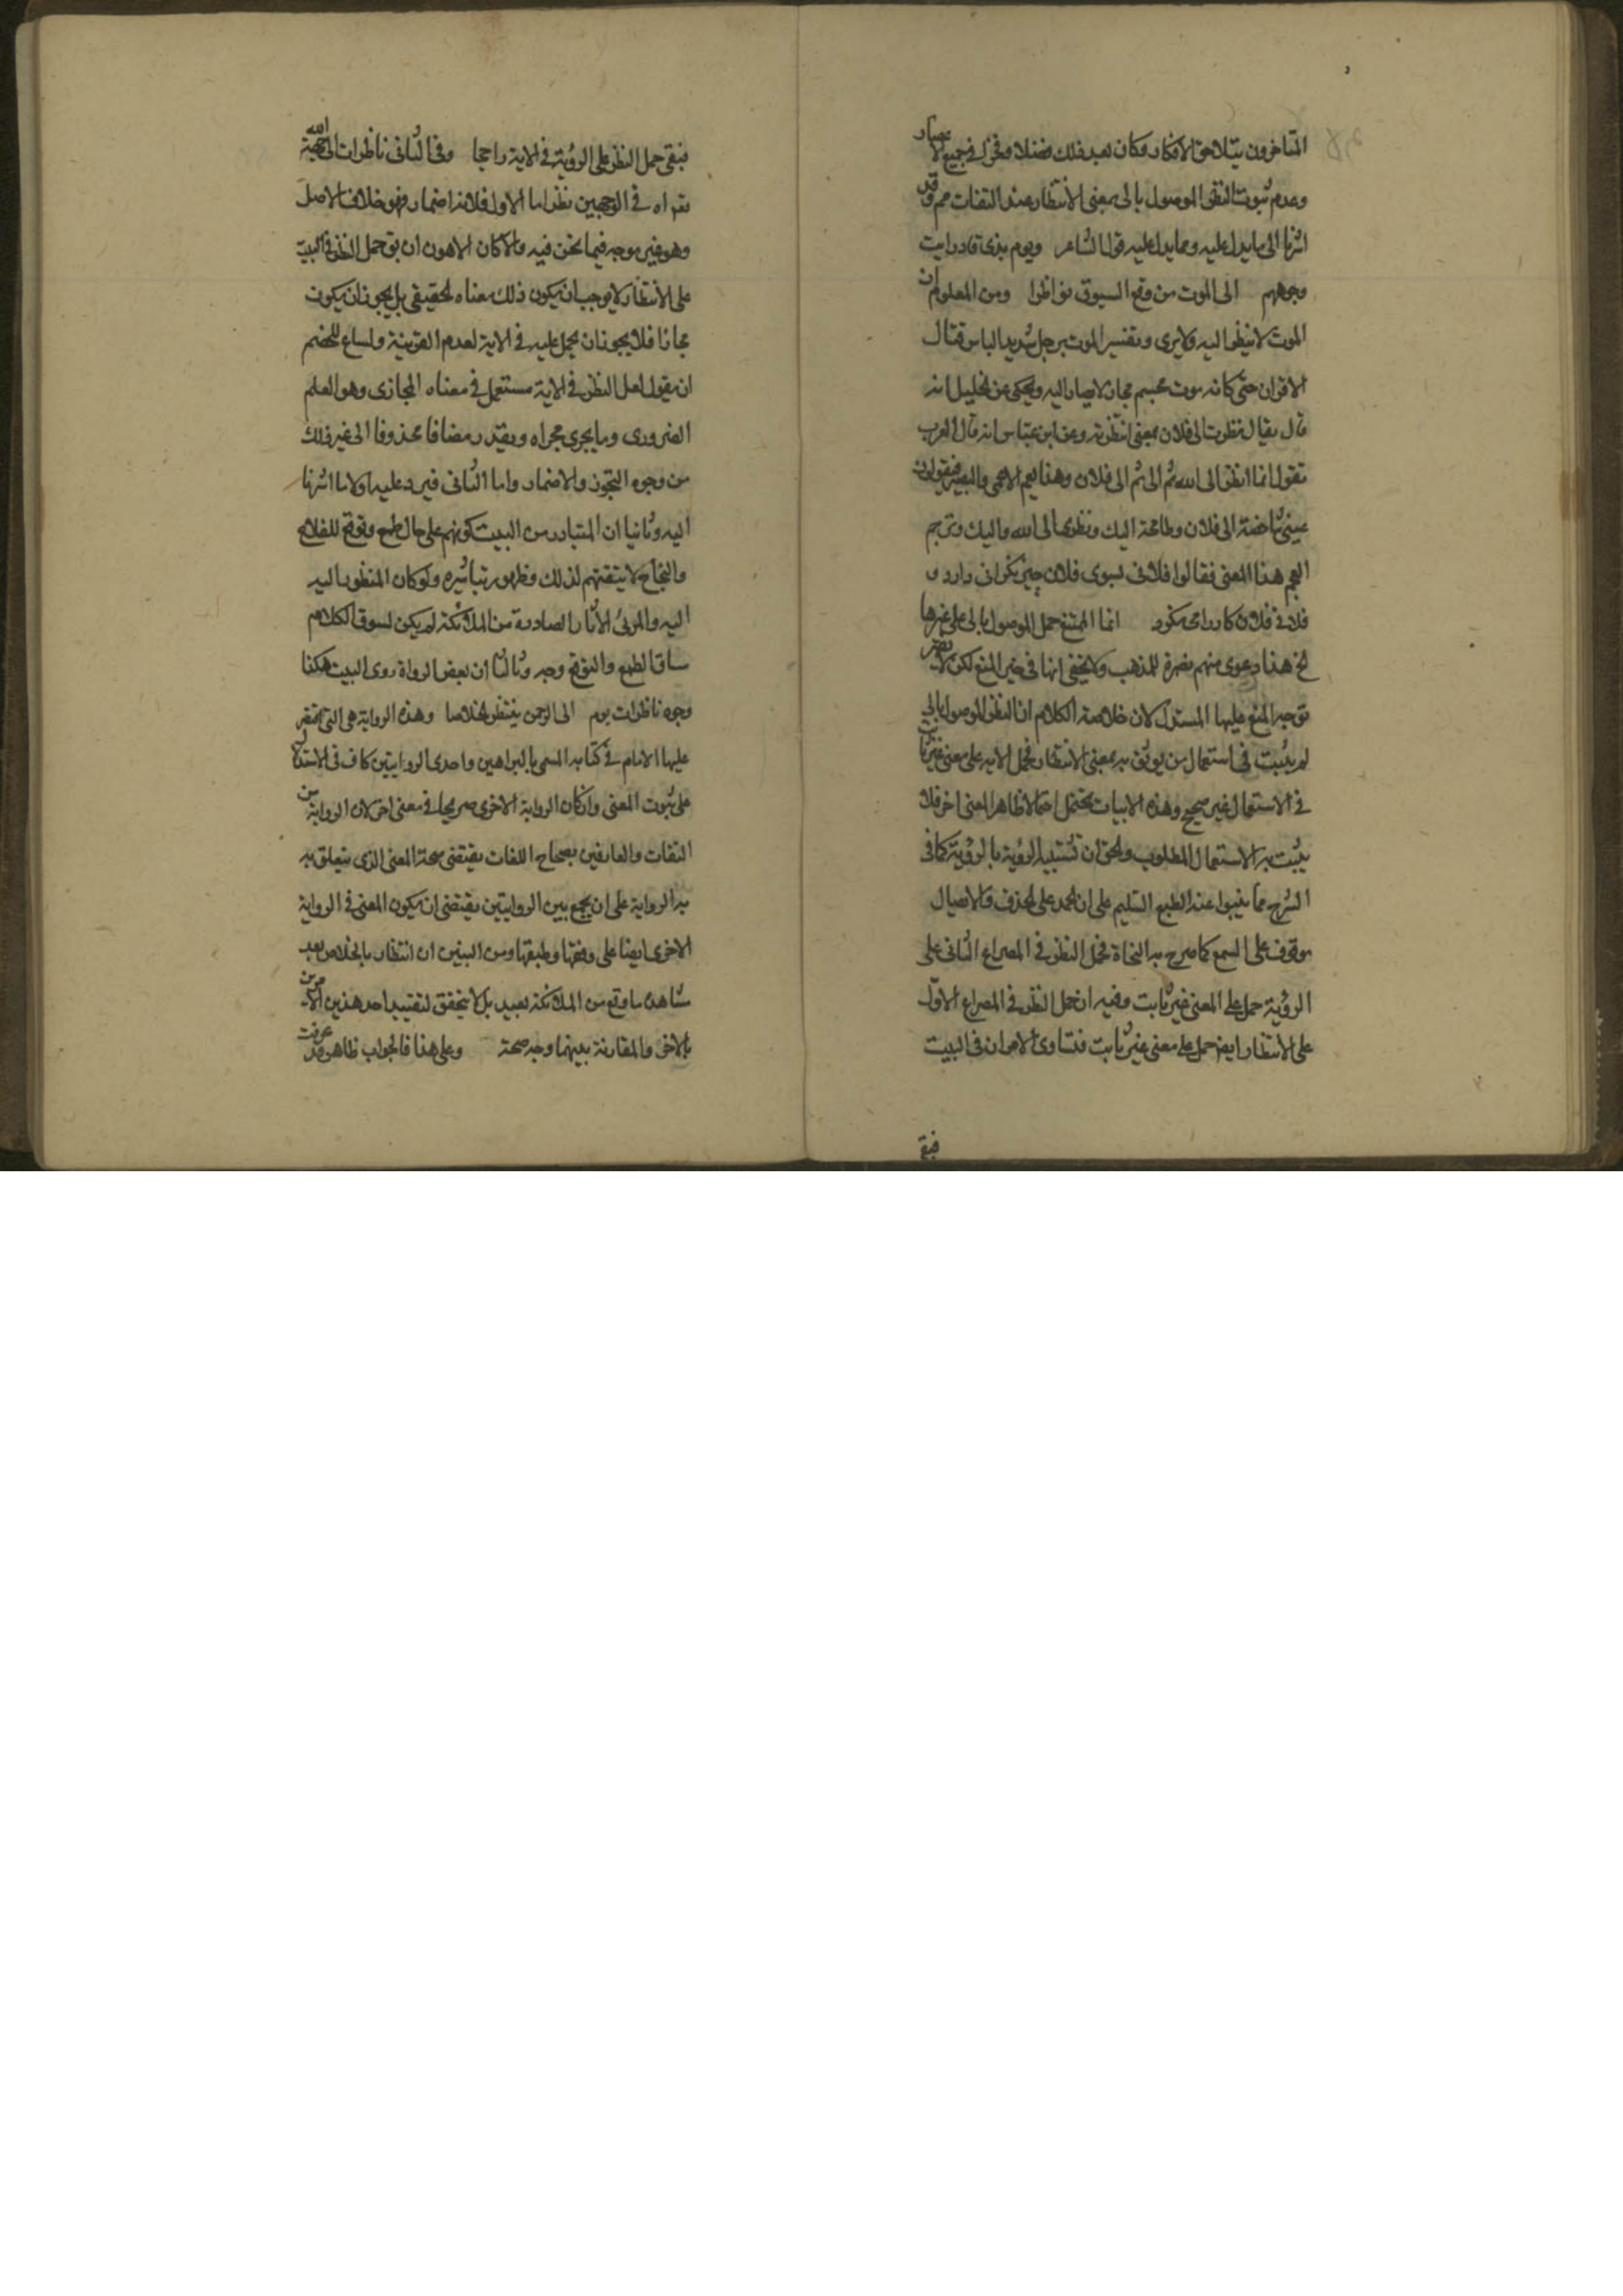 المتاخرون بتلاحق الافكار وكان بعد ذلك فضلا وفخرا في جميع الاعصار
وعدم ثبوت النظر الموصول بالى بمعنى الانتظار عند الثقات مم وقد
اشرنا الى ما يدل عليه ومما يدل عليه قول الشاعر ويوم بذى قار رايت
وجوههم الى الموت من وقع السيوف نواظرا ومن المعلوم ان
الموت لا ينظر اليه ولا يرى وتفسير الموت برجل شديد الباس قتال
الاقران حتى كانه موت مجسم مجاز لا يصار اليه ويحكى عن الخليل انه
قال يقال نظرت الى فلان بمعنى انتظرته وعن ابن عباس انه قال العرب
تقول انما انظر الى الله ثم الى فلان وهذا يعم الاعمى والبصير فيقولون
عينى شاخصة الى فلان وطامحة اليك ونظرى الى الله واليك وترجم
العجم هذا المعنى فقالوا فلانى بسوى فلان چيز نكران دارد و
فلانى فلان كار را مى نكرد انما الممتنع حمل الموصول بالى على غيرها
الخ هذا دعوى منهم نصرة للمذهب ولا يخفى انها في حيز المنع لكن لا يضر
توجيه المنع عليها المستدل لان خلاصة الكلام ان النظر الموصول بالى
لم يثبت في استعمال من يوثق به بمعنى الانتظار فحمل الاية على معنى غير ثابت
في الاستعمال غير صحيح وهذه الابيات يحتمل احتمالا ظاهرا لمعنى اخر فلا
يثبت به الاستعمال المطلوب والحق ان تشبيه الرؤية بالرؤية كما في
الشرح مما ينبوا عند الطبع السليم على ان الحمد على الحذف والايصال
موقوف على السمع كما صرح به النحاة فحمل النظر في المصراع الثانى على
الرؤية حمل على المعنى غير ثابت وفيه ان حمل النظر في المصراع الاول
على الانتظار ايضا حمل على معنى غير ثابت فتساوى الامران في البيت
فبقى
فبقى حمل النظر على الرؤية في الاية راجحا وفي الثانى ناظرات الى جهة الله
نقراه في الوجهين نظر اما الاول فلانه اضمار فهو خلاف الاصل
وهو غير موجه فيما نحن فيه والا كان الاهون ان يق حمل النظر في البيت
على الانتظار لا يوجب ان يكون ذلك معناه الحقيقى بل يجوز ان يكون
مجازا فلا يجوز ان يحمل عليه في الاية لعدم القرينة ولساغ للخصم
ان يقول لعل النظر في الاية مستعمل في معناه المجازى وهو العلم
الضرورى وما يجرى مجراه ويقدر مضافا محذوفا الى غير ذلك
من وجوه التجوز والاضمار واما الثانى فيرد عليه اولا ما اشرنا
اليه وثانيا ان المتبادر من البيت كونهم على حال طمع وتوقع للفلاح
والنجاح لا يتقنهم لذلك وظهور تباشيره ولو كان المنظور اليه
اليه والمرئى الاثار الصادرة من الملائكة لم يكن لسوق الكلام
مساق الطمع والتوقع وجه وثالثا ان بعض الرواة روى البيت هكذا
وجوه ناظرات يوم الى الرحمن ينتظر الخلاصا وهذه الرواية هى التى اقتصر
عليها الامام في كتابه المسمى بالبراهين واحدى الروايتين كاف في الاستدلال
على ثبوت المعنى وان كان الرواية الاخرى صريحا في معنى اخر لان الرواية من
الثقات والعارفين بصحاح اللغات يقتضى صحة المعنى الذى يتعلق به
به الرواية على ان يجمع بين الروايتين يقتضى ان يكون المعنى في الرواية
الاخرى ايضا على وفقها وطبقها ومن البين ان انتظار بالخلاص بعد
مشاهدة ما وقع من الملائكة بعيد بل لا يتحقق لتقييد احد هذين الامرين
بالاخر والمقارنة بينهما وجه صحة وعلى هذا فالجواب ظاهر وقد عرفت